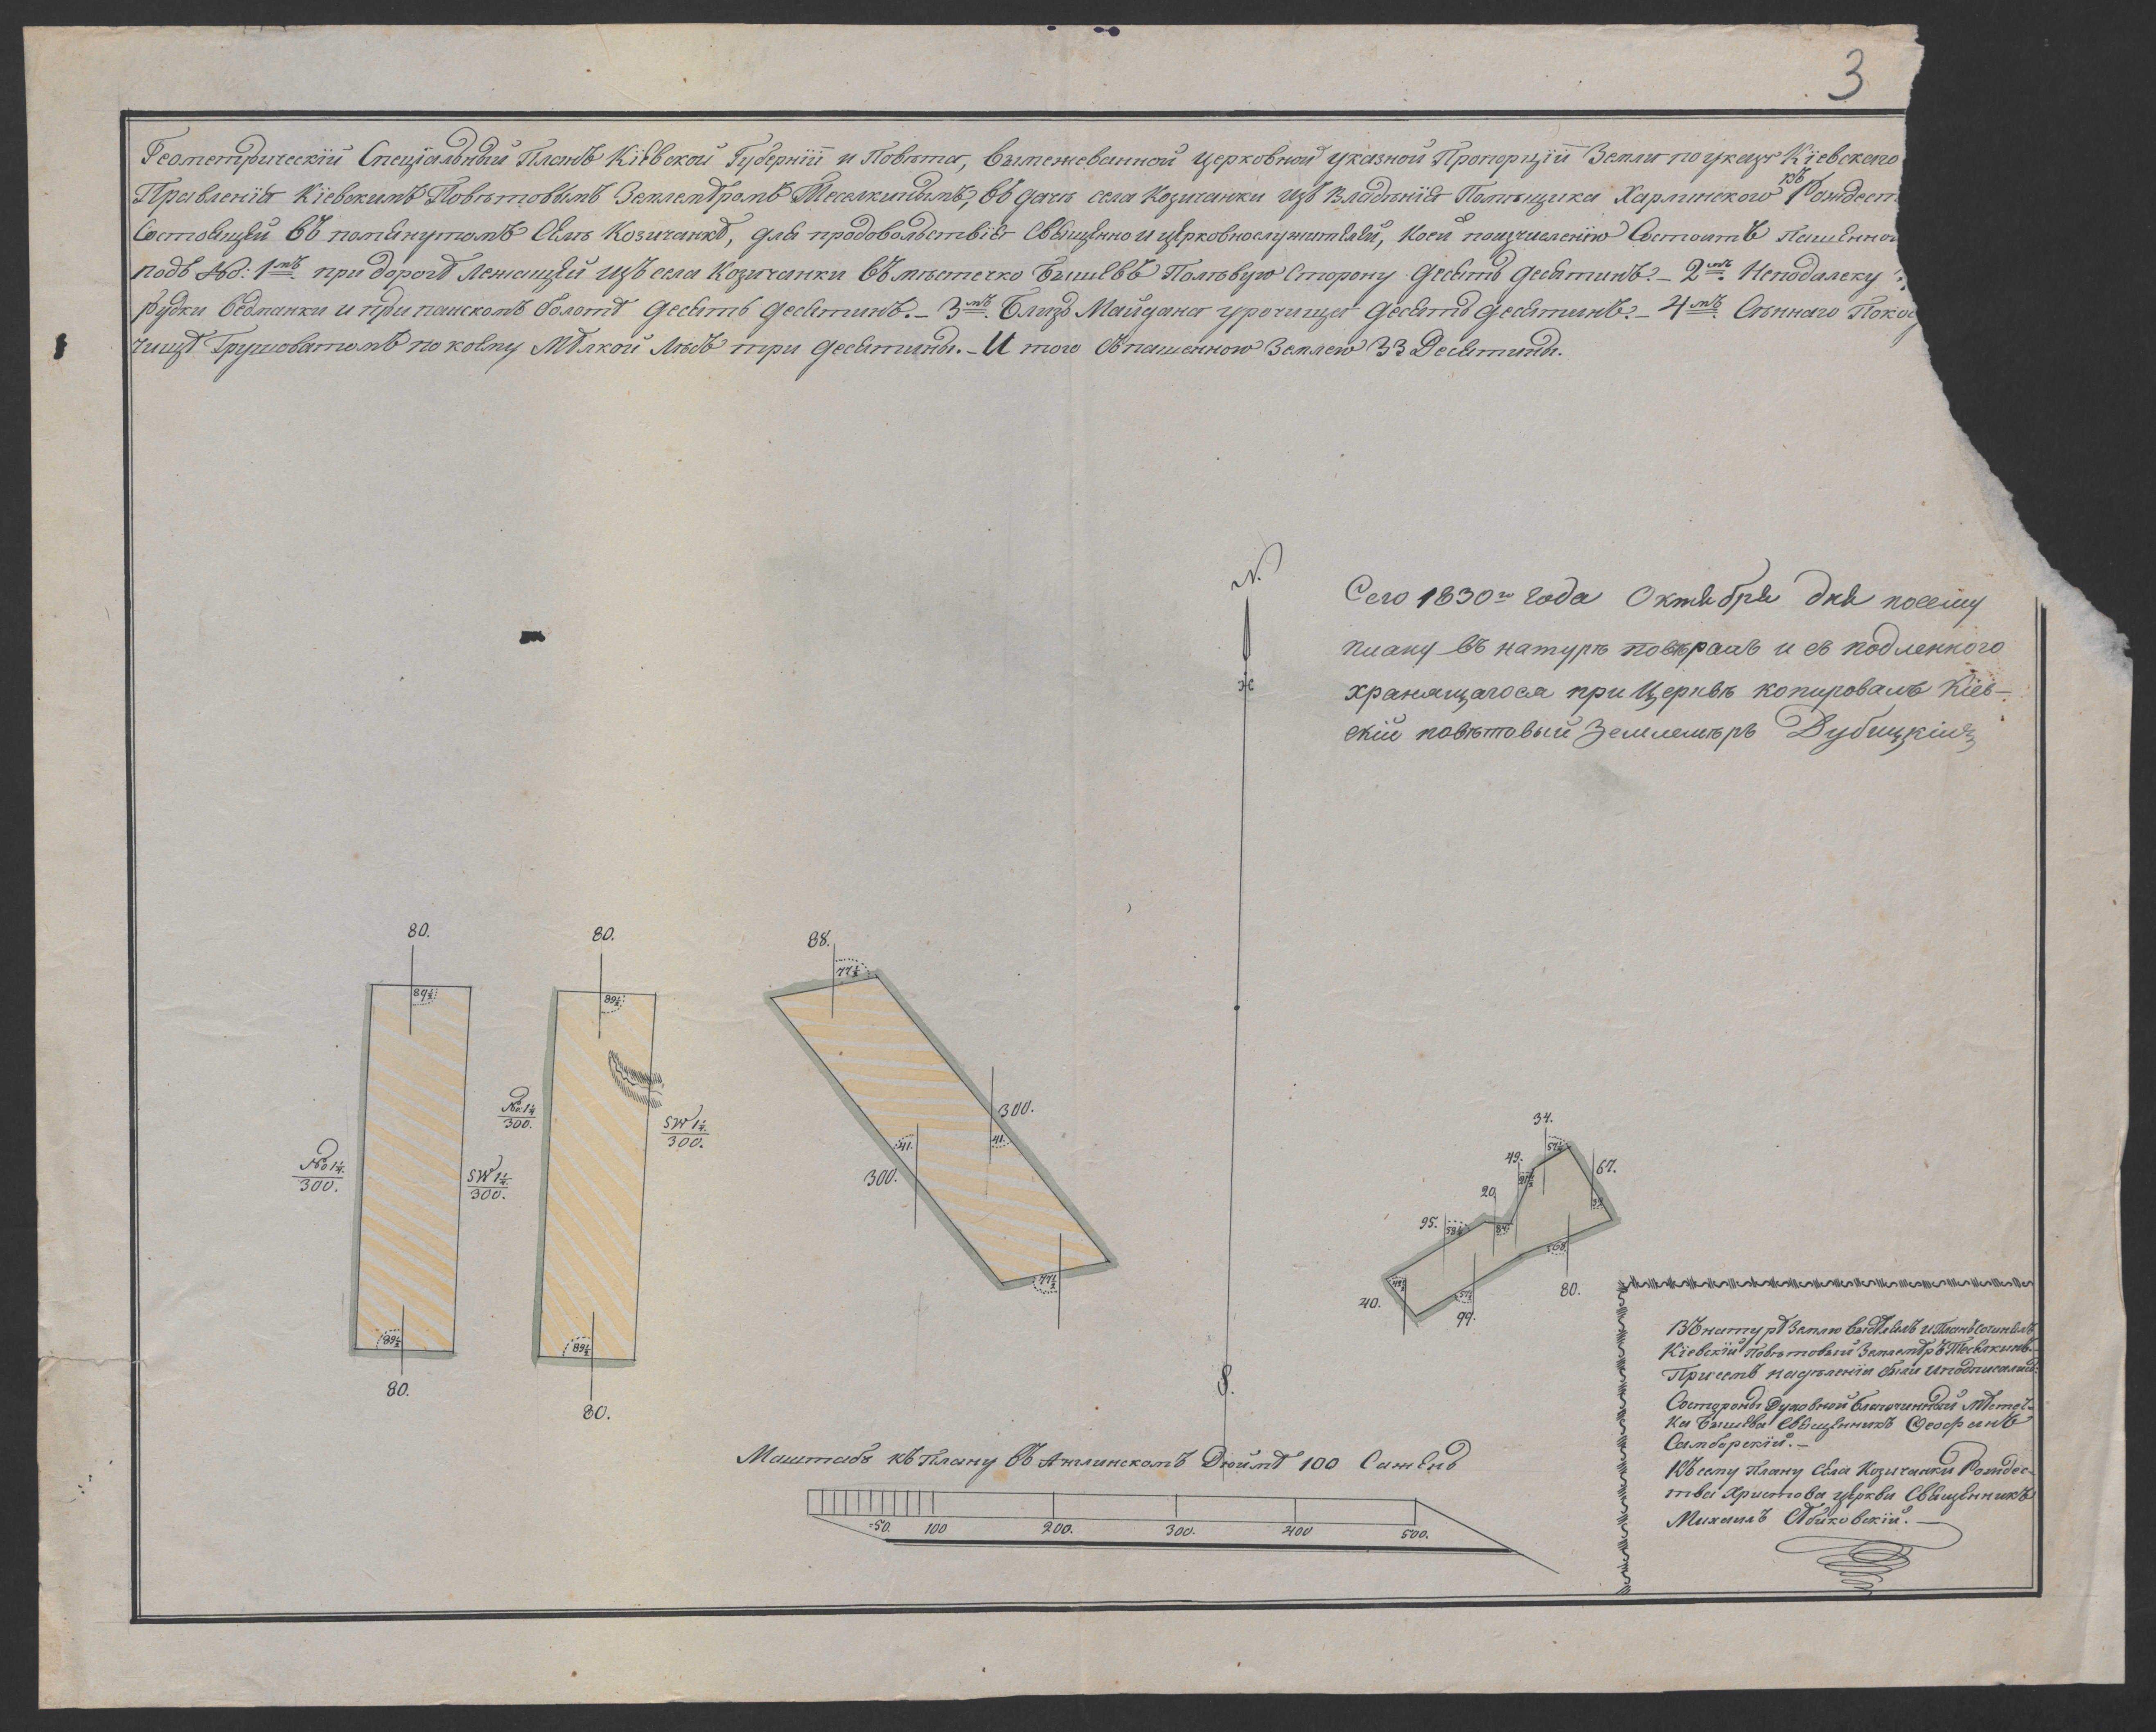 3
Геометрическій Спеціальный Планъ Кіевской Губерніи и Повѣта, вымежеванной церковной указной Пропорціи Земли по указу Кіевскаго
Правленія Кіевскимъ Повѣтовымъ Землемѣромъ въ дачѣ села Козичанки изъ Владѣнія Помѣщика Харлинского къ Рождест
Состоящей въ помянутомъ Селѣ Козичанкѣ, для продовольствія Священно и церковнослужителей, коей по исчисленію Состоитъ Пашенной
подъ №: 1мъ при дорогѣ Лежащей изъ села Козичанки въ мѣстечко Бышевъ По лѣвую Сторону десять десятинъ. – 2мъ. Неподалеку
рудки и при панскомъ болотѣ десять десятинъ. – 3мъ. Близь Майдана урочища десять десятинъ. – 4мъ. Сѣннаго Покос
чищѣ Грушоватомъ по коему Мѣлкой Лѣсъ три десятины. – И того съ пашенною Землею 33 Десятины.
N.
Сего 1830го года Октября дня по сему
плану въ натурѣ повѣрялъ и съ подленного
хранящагося при Церквѣ копировалъ Кіев–
скій повѣтовый Землемѣръ Дубицкій
80.
80.
88.
77½
89¼
89¼
No 1¼
300.
SW 1¼
300.
300.
41.
41.
300.
No 1¼
300.
SW 1¼
300.
34.
57½
49.
67.
20.
95.
58½
84
68
40.
99.
80.
77½
89¼
89¼
80.
80.
S.
Маштабъ къ Плану въ Англинскомъ Дюймѣ 100 Саженъ
50. 100 200. 300. 400 500.
Въ натурѣ Землю выдѣлялъ и Планъ сочинялъ
Кіевскій Повѣтовый Землемѣръ
При семъ надѣленіи были и подписались:
Состороны Духовной Благочинный Мѣстеч–
ка Бышева Священникъ Ѳеофанъ
Самборскій. –
Къ сему Плану Села Козичанки Рождес–
тва Христова церкви Священникъ
Михаилъ